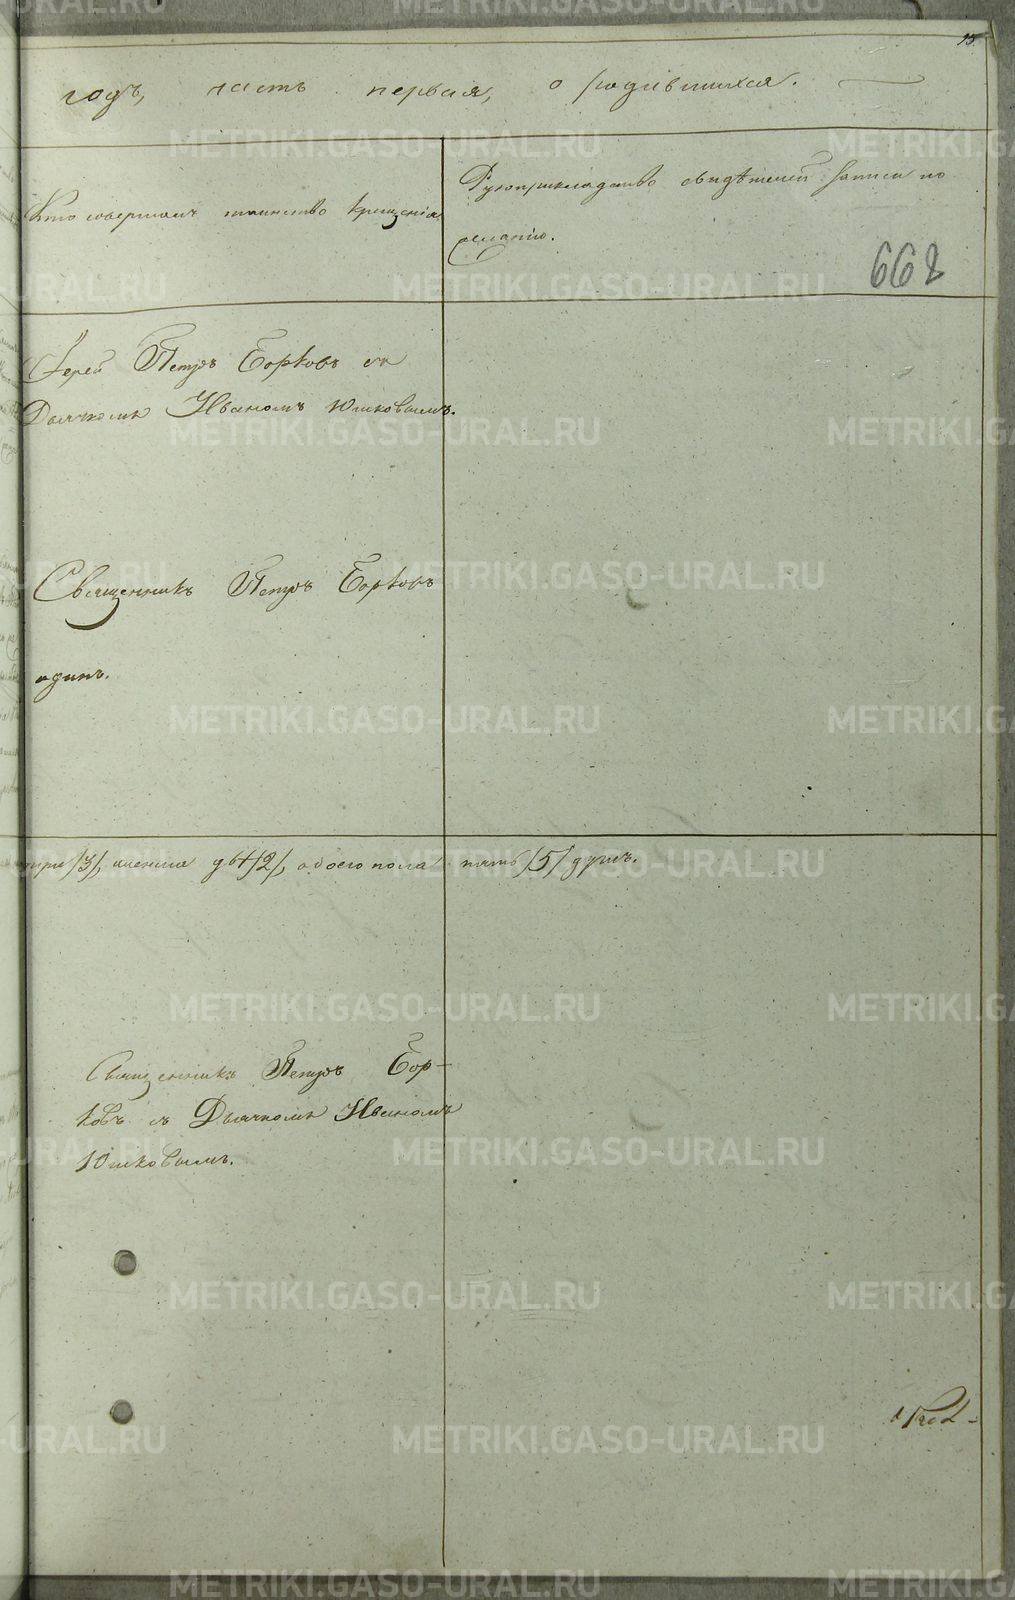 15.
годъ, часть первая, о родившихся.
Кто совершалъ таинство крещенія
Рукоприкладство свидѣтелей записи по
желанію.
668
Іерей Петръ Борковъ съ
Дьячкомъ Иваномъ Юшковымъ.
Священникъ Петръ Борковъ
одинъ.
/3/, женска двѣ /2/, обоего пола пять /5/ душъ.
Священникъ Петръ Бор-
ковъ съ Дьячкомъ Иваномъ
Юшковымъ.
METRIKI.GASO-URAL.RU